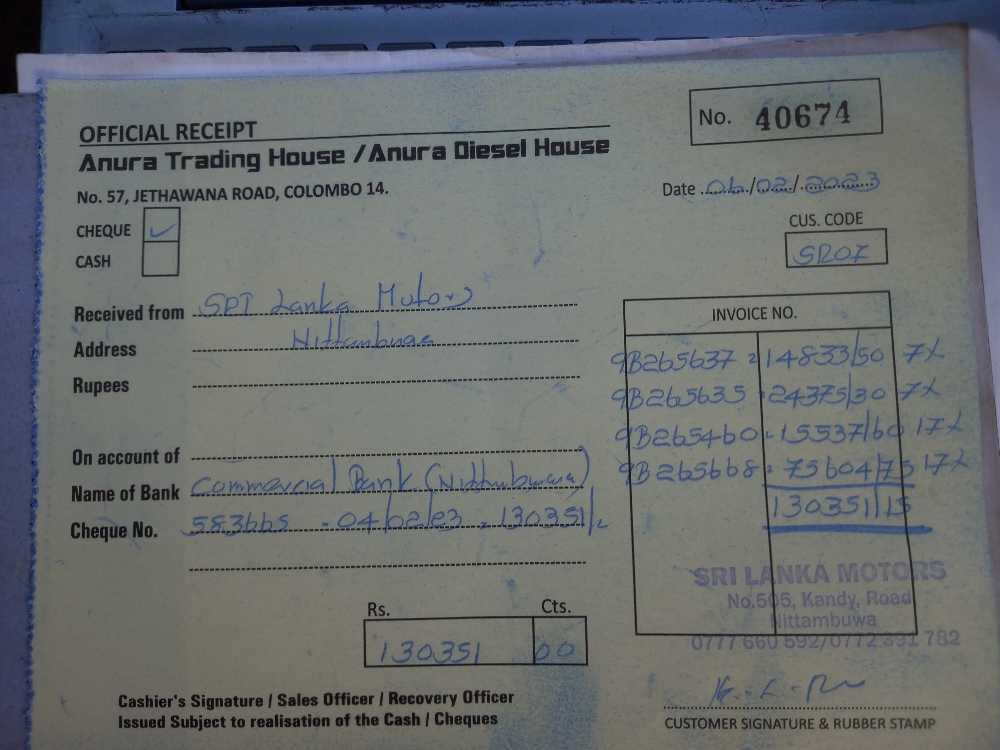 OFFICIAL RECEIPT
No. 40674
Anura Trading House / Anura Diesel House
No. 57, JETHAWANA ROAD, COLOMBO 14.
Date 06/02/2023
CHEQUE ✓
CUS. CODE
CASH
SR07
Received from Lanka Motors
INVOICE NO.
Address Nittambuwa
9B265637 = 14833/50 7%
Rupees
9B265635 = 24375/30 7%
9B265460 = 15537/60 17%
On account of
9B265668 = 75604/75 17%
Name of Bank Commercial Bank (Nittambuwa)
130351/15
Cheque No. 583665 - 04/02/23 - 130351/=
SRI LANKA MOTORS
No.505, Kandy, Road
Nittambuwa
0777 660 592/0772 391 782
Rs. Cts.
130351 00
Cashier's Signature / Sales Officer / Recovery Officer
Issued Subject to realisation of the Cash / Cheques
CUSTOMER SIGNATURE & RUBBER STAMP